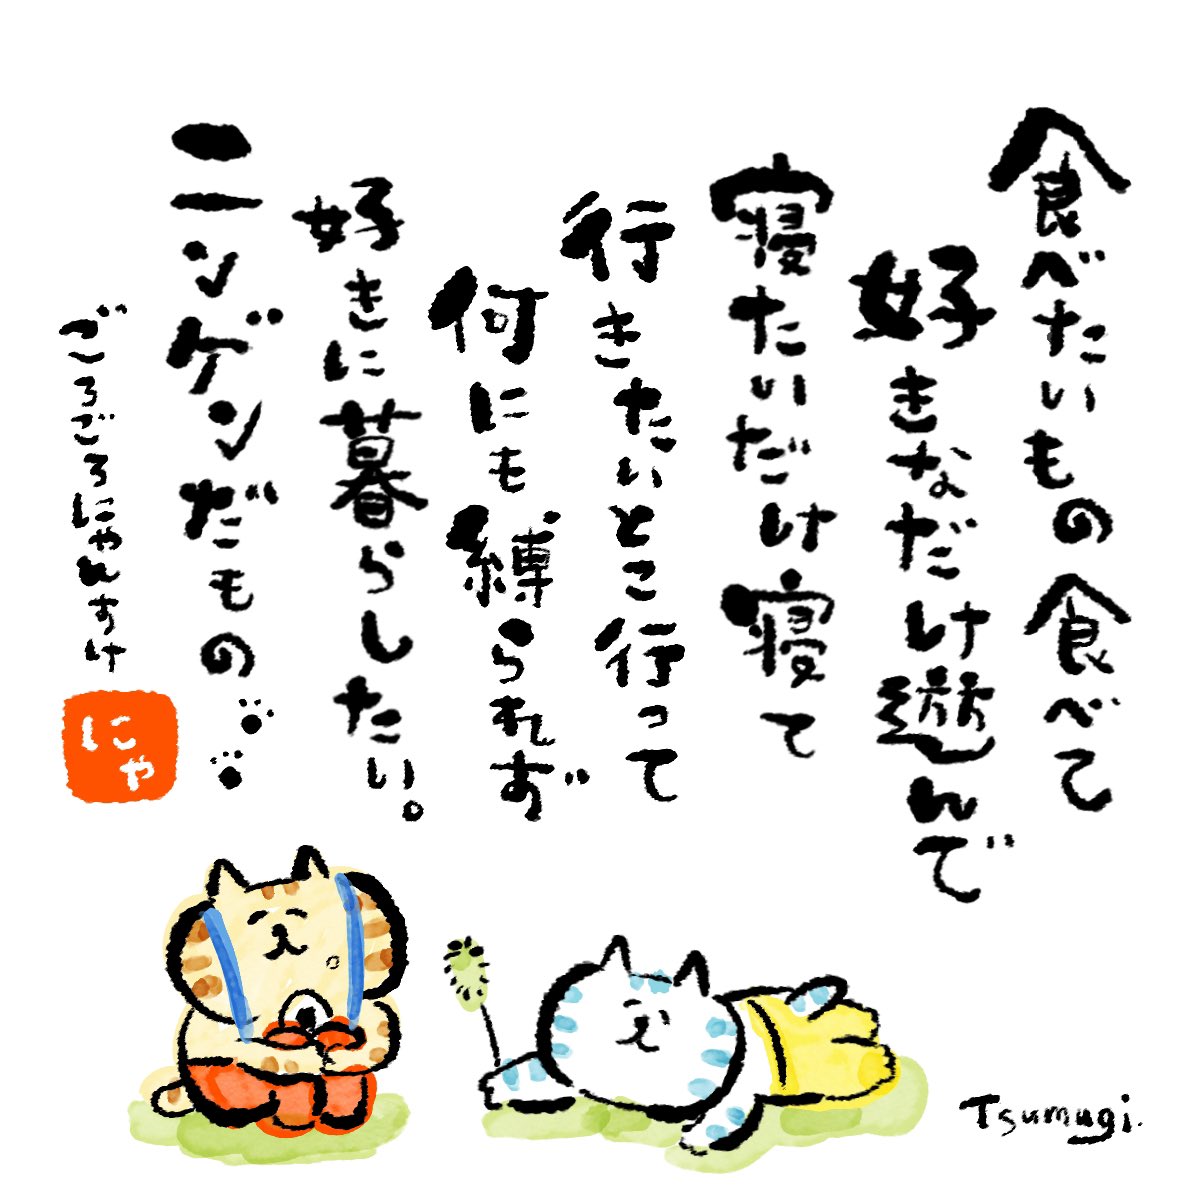 食べたいもの食べて
好きなだけ遊んで
寝たいだけ寝て
行きたいとこ行って
何にも縛られず
好きに暮らしたい。
ニンゲンだもの
ごろごろにゃんすけ
にゃ
Tsumugi.